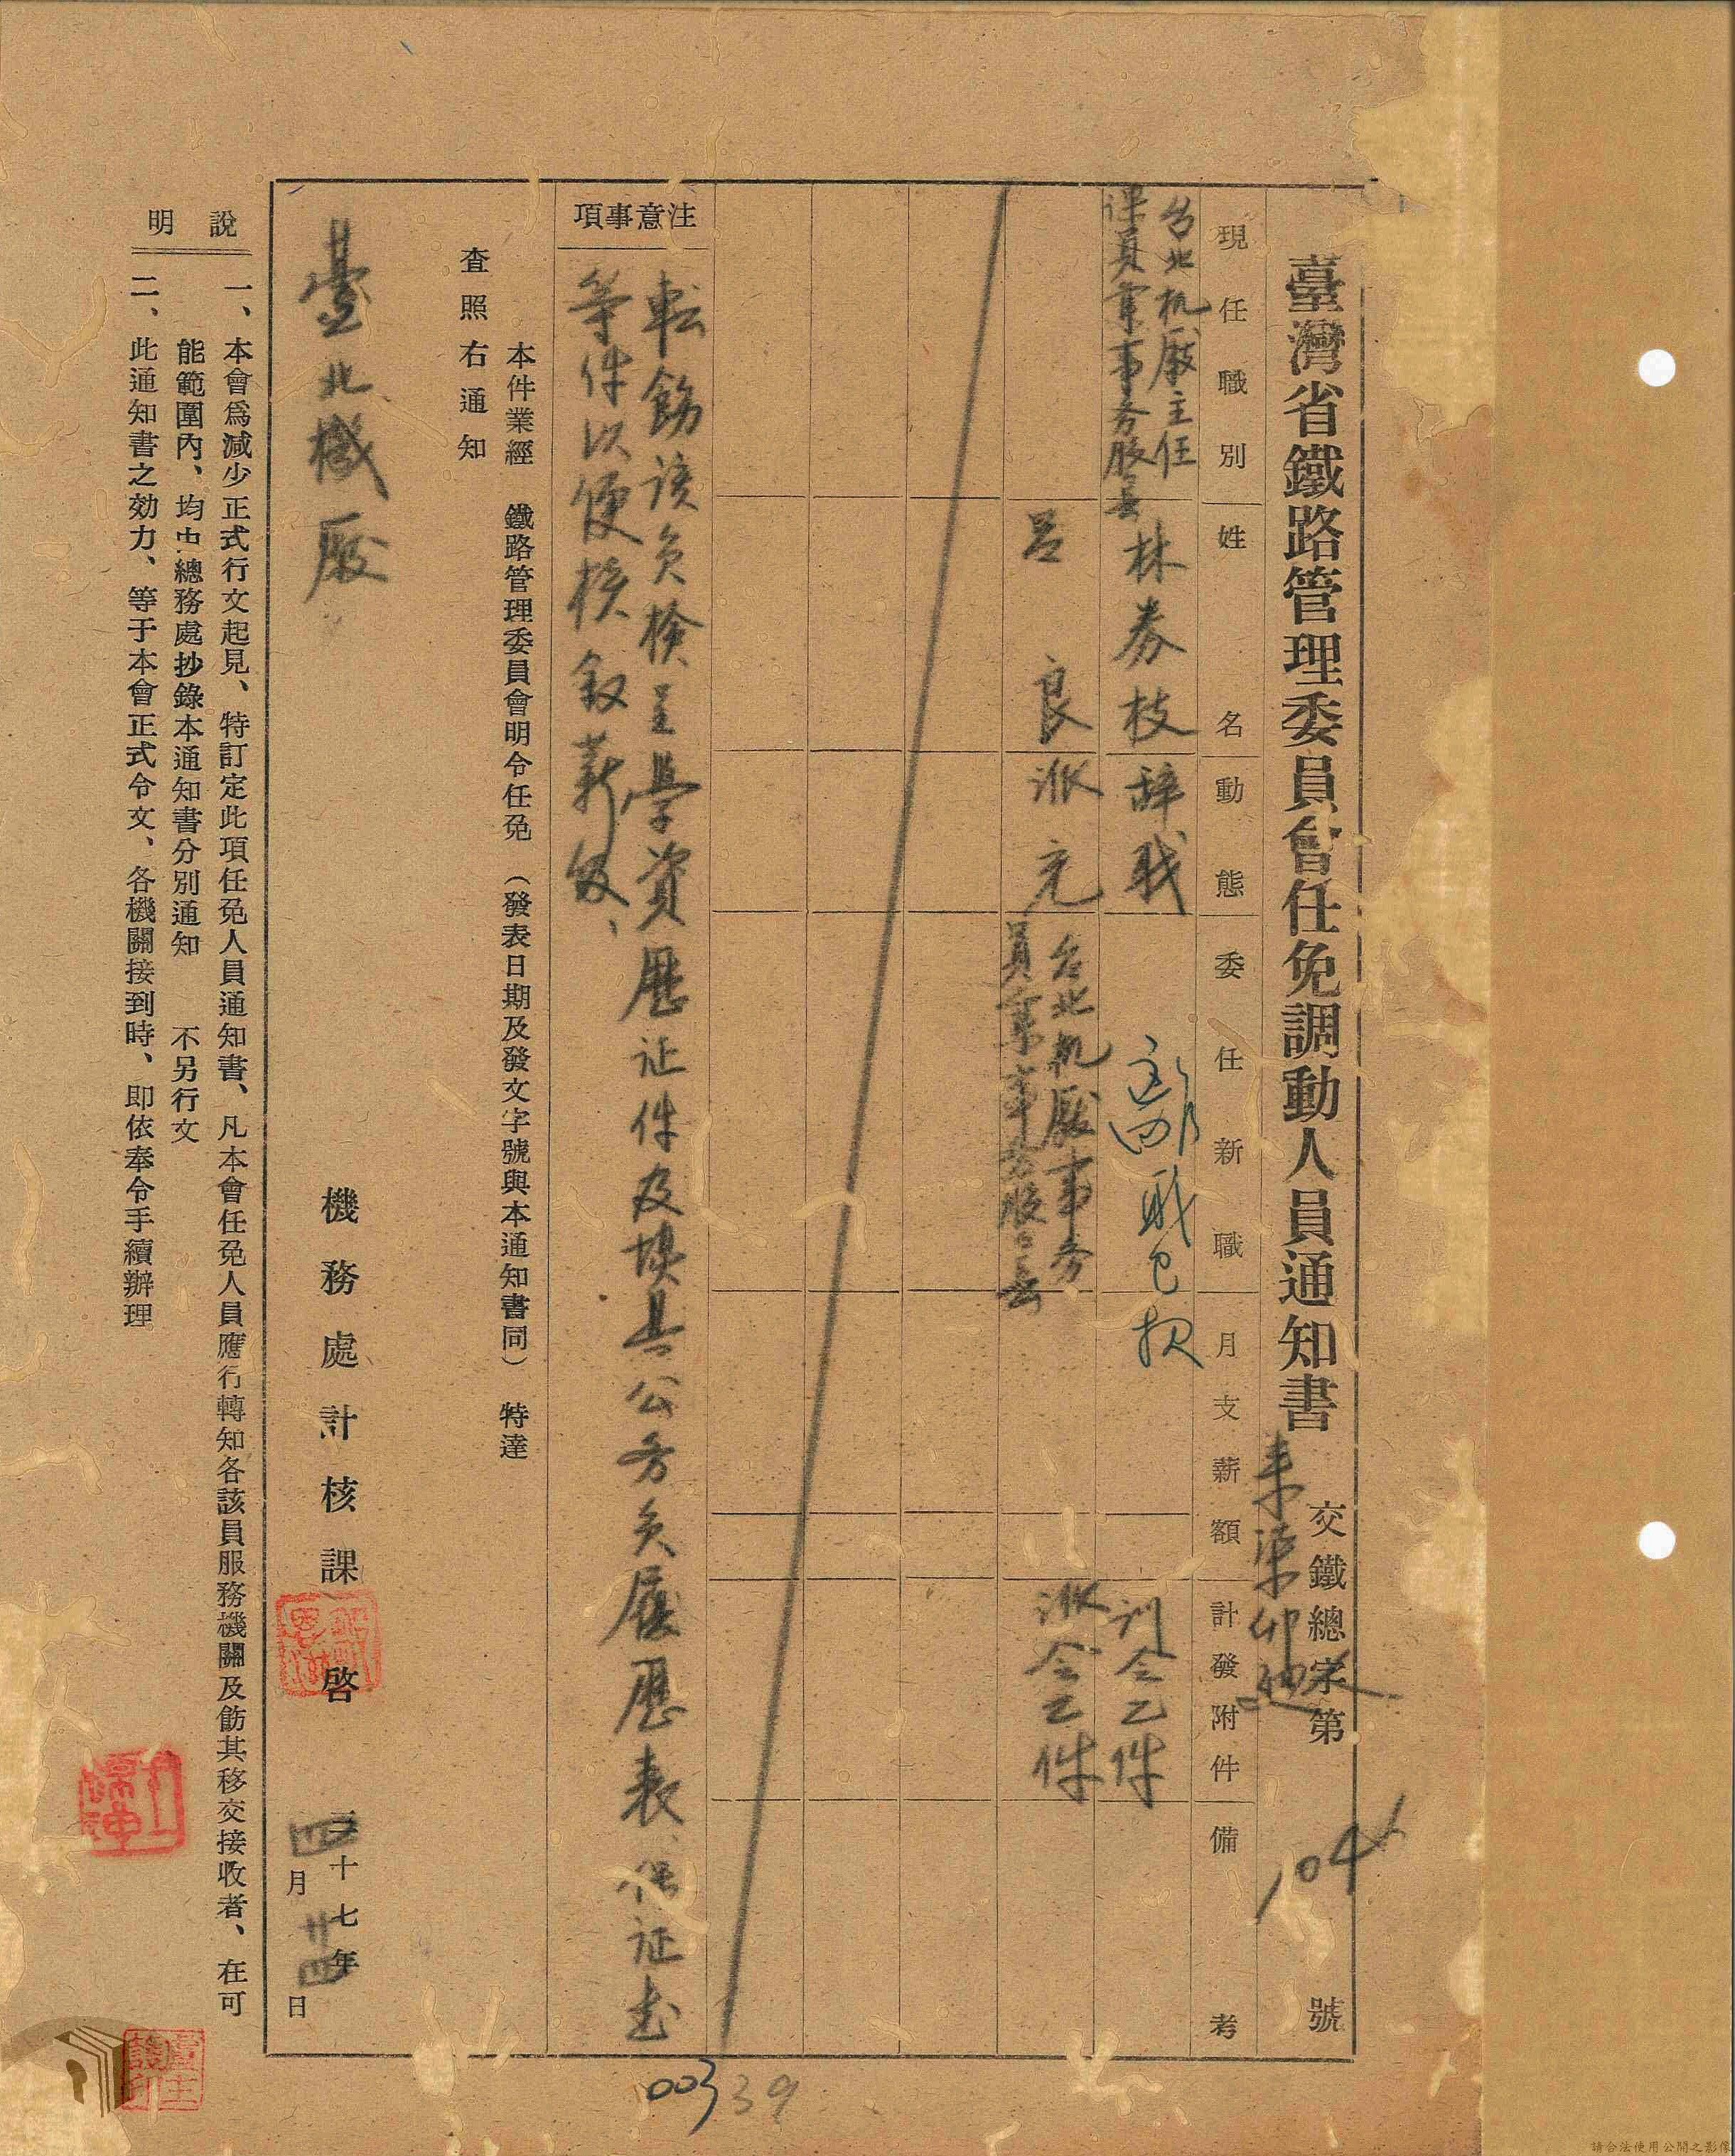 臺灣省鐵路管理委員會任免調動人員通知書
交鐵總字第 號
104
現任職別
姓名
動態
委任新職
月支薪額
計發附件
備考
台北机廠主任
課員兼事务股長
林劵枝
辞职
訓令乙件
呂良
派充
台北机廠事务
員兼事务股長
派令乙件
注意事項
転飭該負検呈學資歷证件及填具公务負履歷表、保证书
等件以便核敘薪級、
本件業經 鐵路管理委員會明令任免 (發表日期及發文字號與本通知書同) 特達
查照右通知
臺北機廠
機務處計核課 啓
三十七年
四月廿四日
說明
一、本會爲減少正式行文起見、特訂定此項任免人員通知書、凡本會任免人員應行轉知各該員服務機關及飭其移交接收者、在可
能範圍內、均由總務處抄錄本通知書分別通知 不另行文
二、此通知書之効力、等于本會正式令文、各機關接到時、即依奉令手續辦理
003
39
請合法使用公開之影像